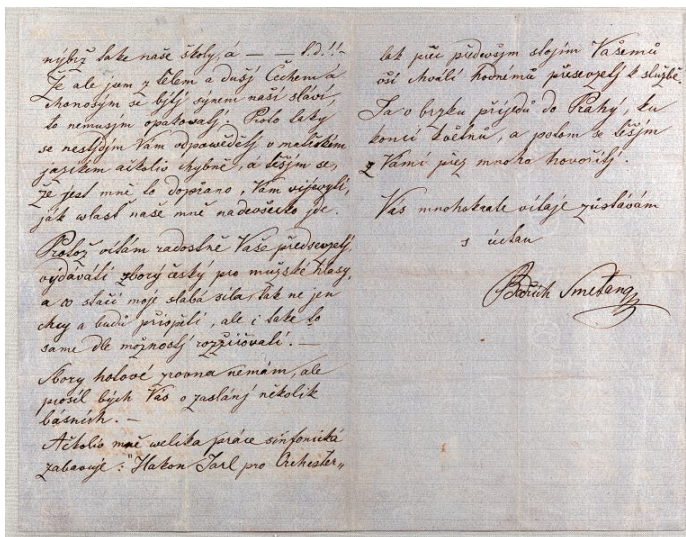 nýbrž take naše školy, á — — t.d.!!-
Že ale jsem z tělem a dušj Čechem á
chonosým se býtj synem naší sláví,
to nemusjm opakovatj. Proto taky
se nestjdjm Vám odpowědětj v matičském
jazikem ačkoliv chybně, a těšjm se,
že jest mně to dopřáno, Vám vijevyti,
ják wlast naše mně nadevšecko jde.
Protož vítám radostně Vaše předsevzetj,
vydáváti zbory český pro mužské hlasy,
a co stačí moje slabá sila, tak ne jen
chcy a budu přispětí, ale i take to
same dle možnostj rozšiřovatí. —
Sbory hotové zrovna nemám, ale
prosíl bých Vás o zaslánj několik
básních. —
Ačkoliv mně welika práce sinfonická
zabavuje: "Hakon Jarl pro Orchester„
tak přec předewšým stojím Vašemů
vší chválí hodnému přesevzetj k službě.
Ja v brzku příjedů do Prahý, ku
koncí květnů, a potom se těšjm
z Vámí přez mnoho hovořitj.
Vás mnohokrate vítaje zůstávám
s úctau
Bedřich Smetana